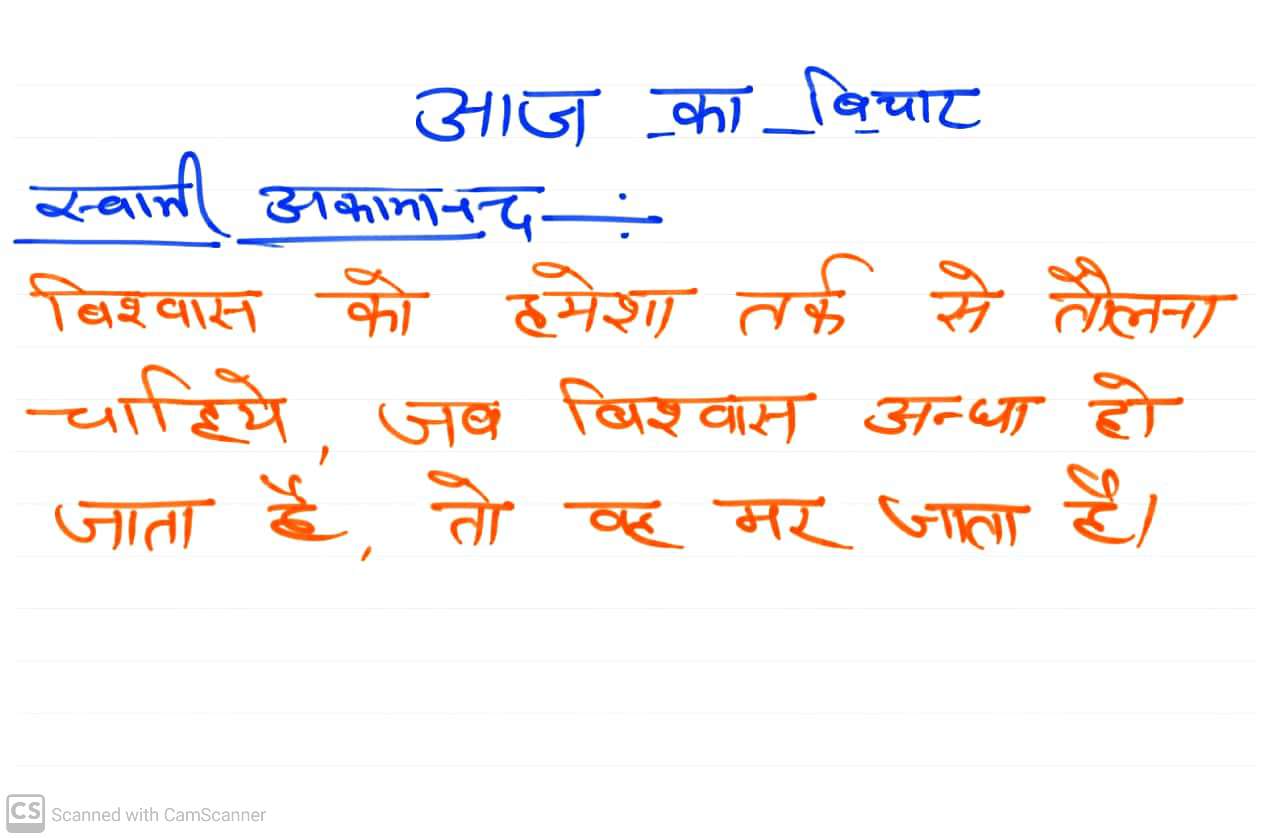 आज का बिचार
स्वामी अकामानन्द —:
बिश्वास को हमेशा तर्क से तौलना
चाहिये, जब बिश्वास अन्धा हो
जाता है, तो वह मर जाता है।
CS Scanned with CamScanner